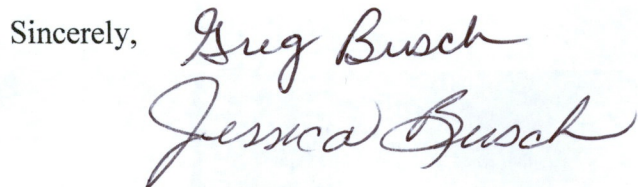 Sincerely, Greg Busch
Jessica Busch